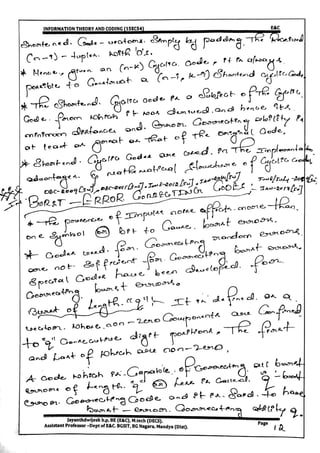 INFORMATION THEORY AND CODING (15EC54) E&C
Shortened. Code - urations. Simply by padding. The
(n-1) - tuples. With 0's.
* Hence, given an (n-k) Cyclic Code, it is always
possible to Construct a (n-i, k-i) Shortened Cyclic Code.
* The Shortend. Cyclic Code is a Subset of the Cyclic.
Code. from which it was derived. and hence its
minimum distances and. Error. Correcting ability is
at least as great as that of the original Code.
* Shortend. Cyclic Codes are used. in The
advantages. mathematical Structure of Cyclic Codes
BURST - ERROR CORRECTING CODES:-
* The presence of Impulse noise affects. more than.
one Symbol or bit to Cause. burst errors.
* Codes used. for. Correcting random errors
are not Sufficient for Correcting burst errors.
Special Codes have been developed. for
Correcting burst errors.
Burst of Length. "q" :- It is defined as a
vector. Whose non-zero Components are Confined
to "q" Consecutive digit positions, The first
and Last of Which are non-zero.
A Code Which is Capable. of Correcting all burst
errors of Length. "q" or Less is Called. q - burst
error. Correcting Code and it is. Said. to have
burst - error. Correcting ability q.
Jayanthdwijesh h.p. BE (E&C), M.tech (DECS).
Assistant Professor -Dept of E&C. BGSIT, BG Nagara, Mandya (Dist).
Page 12